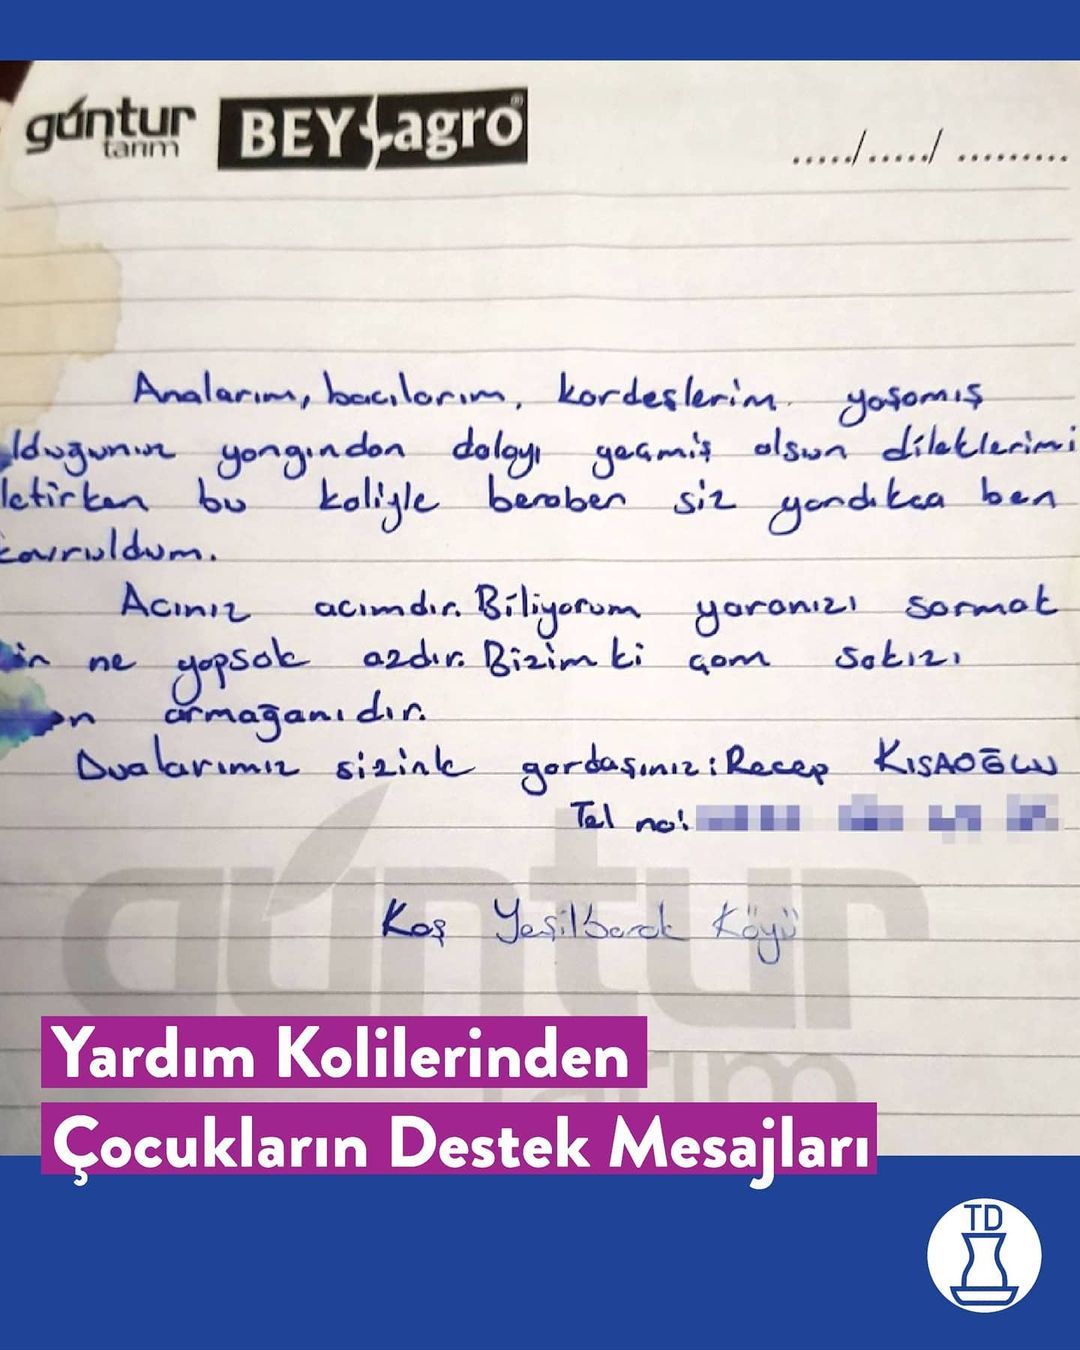 güntur
tarım
BEY agro®
...../...../ ..........
Analarım, bacılarım, kardeşlerim yaşamış
lduğunuz yangından dolayı geçmiş olsun dileklerimi
letirken bu koliyle beraber siz yandıkça ben
kavruldum.
Acınız acımdır. Biliyorum yaranızı sarmak
in ne yapsak azdır. Bizimki çam sakızı
an armağanıdır.
Dualarımız sizinle gardaşınız: Recep KISAOĞLU
Tel no:
Kaş Yeşilbarak Köyü
güntur
tarım
Yardım Kolilerinden
Çocukların Destek Mesajları
TD